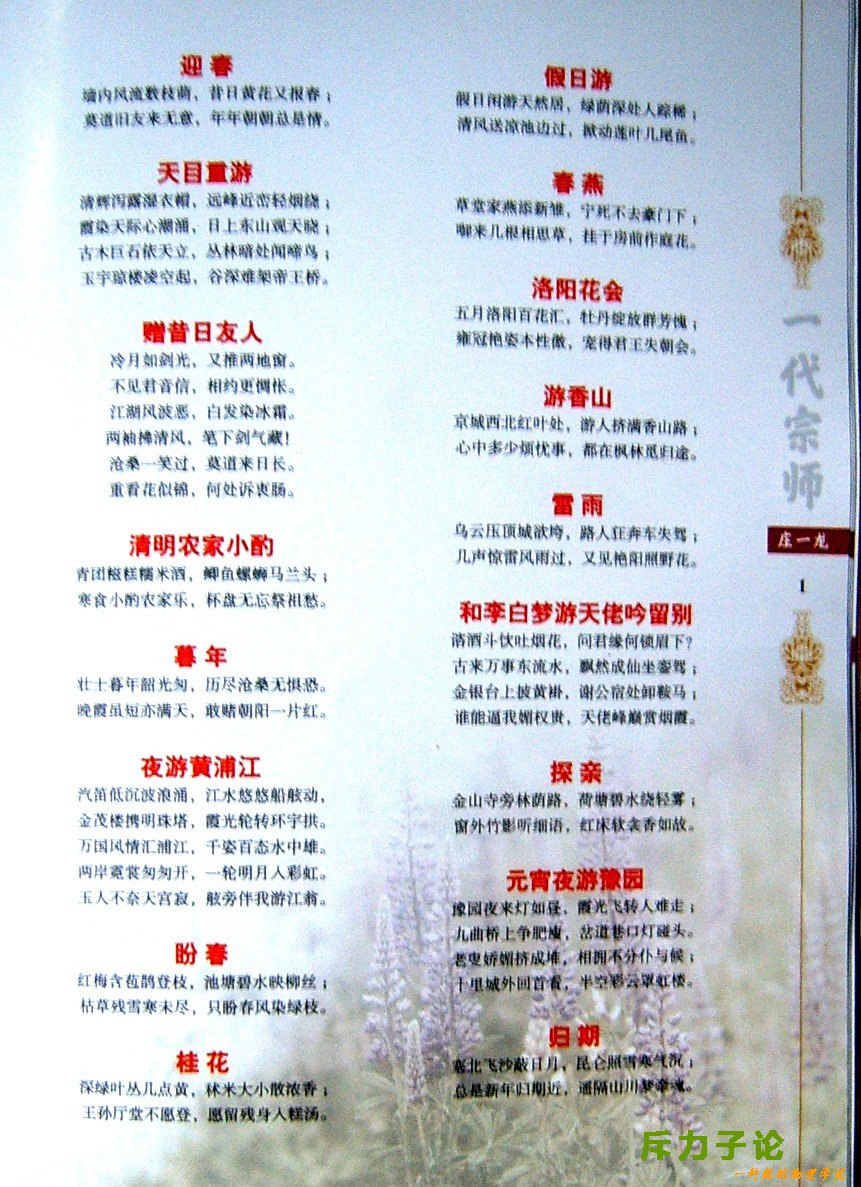 迎春
墙内风流数枝萌，昔日黄花又报春；
莫道旧友来无意，年年朝朝总是情。
天目重游
清辉泻露湿衣帽，远峰近峦轻烟绕；
霞染天际心潮涌，日上东山观天晓；
古木巨石依天立，丛林暗处闻啼鸟；
玉宇琼楼凌空起，谷深难架帝王桥。
赠昔日友人
冷月如剑光，又推两地窗。
不见君音信，相约更惆怅。
江湖风波恶，白发染冰霜。
两袖拂清风，笔下剑气藏！
沧桑一笑过，莫道来日长。
重看花似锦，何处诉衷肠。
清明农家小酌
青团糍糕糯米酒，鲫鱼螺蛳马兰头；
寒食小酌农家乐，杯盘无忘祭祖愁。
暮年
壮士暮年韶光匆，历尽沧桑无惧恐。
晚霞虽短亦满天，敢赌朝阳一片红。
夜游黄浦江
汽笛低沉波浪涌，江水悠悠船舷动，
金茂楼携明珠塔，霞光轮转环宇拱。
万国风情汇浦江，千姿百态水中雄。
两岸霓裳匆匆开，一轮明月入彩虹。
玉人不奈天宫寂，舷旁伴我游江翁。
盼春
红梅含苞鹊登枝，池塘碧水映柳丝；
枯草残雪寒未尽，只盼春风染绿枝。
桂花
深绿叶丛几点黄，秫米大小散浓香；
王孙厅堂不愿登，愿留残身入糕汤。
假日游
假日闲游天然居，绿荫深处人踪稀；
清风送凉池边过，掀动莲叶几尾鱼。
春燕
草堂家燕添新雏，宁死不去豪门下；
啣来几根相思草，挂于房前作庭花。
洛阳花会
五月洛阳百花汇，牡丹绽放群芳愧；
雍冠艳姿本性傲，宠得君王失朝会。
游香山
京城西北红叶处，游人挤满香山路；
心中多少烦忧事，都在枫林觅归途。
雷雨
乌云压顶城欲垮，路人狂奔车失驾；
几声惊雷风雨过，又见艳阳照野花。
和李白梦游天佬吟留别
谐酒斗饮吐烟花，问君缘何锁眉下？
古来万事东流水，飘然成仙坐銮驾；
金银台上披黄褂，谢公宿处卸鞍马；
谁能逼我媚权贵，天佬峰巅赏烟霞。
探亲
金山寺旁林荫路，荷塘碧水绕轻雾；
窗外竹影听细语，红床软衾香如故。
元宵夜游豫园
豫园夜来灯如昼，霞光飞转人难走；
九曲桥上争肥瘦，岔道巷口灯碰头。
老叟娇媚挤成堆，相拥不分仆与候；
十里城外回首看，半空彩云罩虹楼。
归期
塞北飞沙蔽日月，昆仑照雪寒气沉；
总是新年归期近，遥隔山川梦牵魂。
一代宗师
庄一龙
1
斥力子论